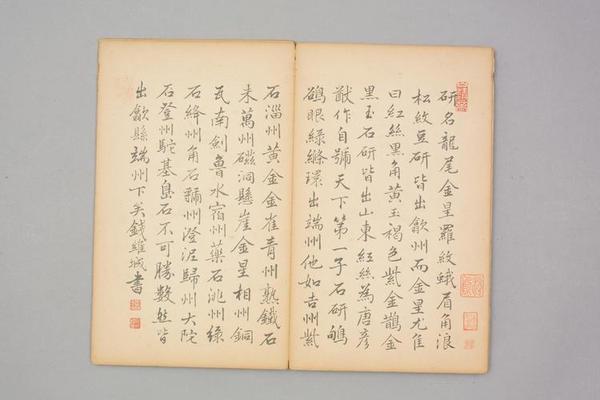 研名龍尾金星羅紋蛾眉角浪
松紋豆研皆出歙州而金星尤佳
曰紅絲黑角黃玉褐色紫金鵲金
黑玉石研皆出山東紅絲為唐彥
猷作自號天下第一子石研鴝
鵒眼綠絛環出端州他如吉州紫
石淄州黃金金雀青州熟鐵石
未萬州磁洞懸崖金星相州銅
瓦南劍魯水宿州藥石洮州綠
石絳州角石彌州澄泥歸州大陀
石登州駝基島石不可勝數然皆
出歙縣端州下矣錢維城書